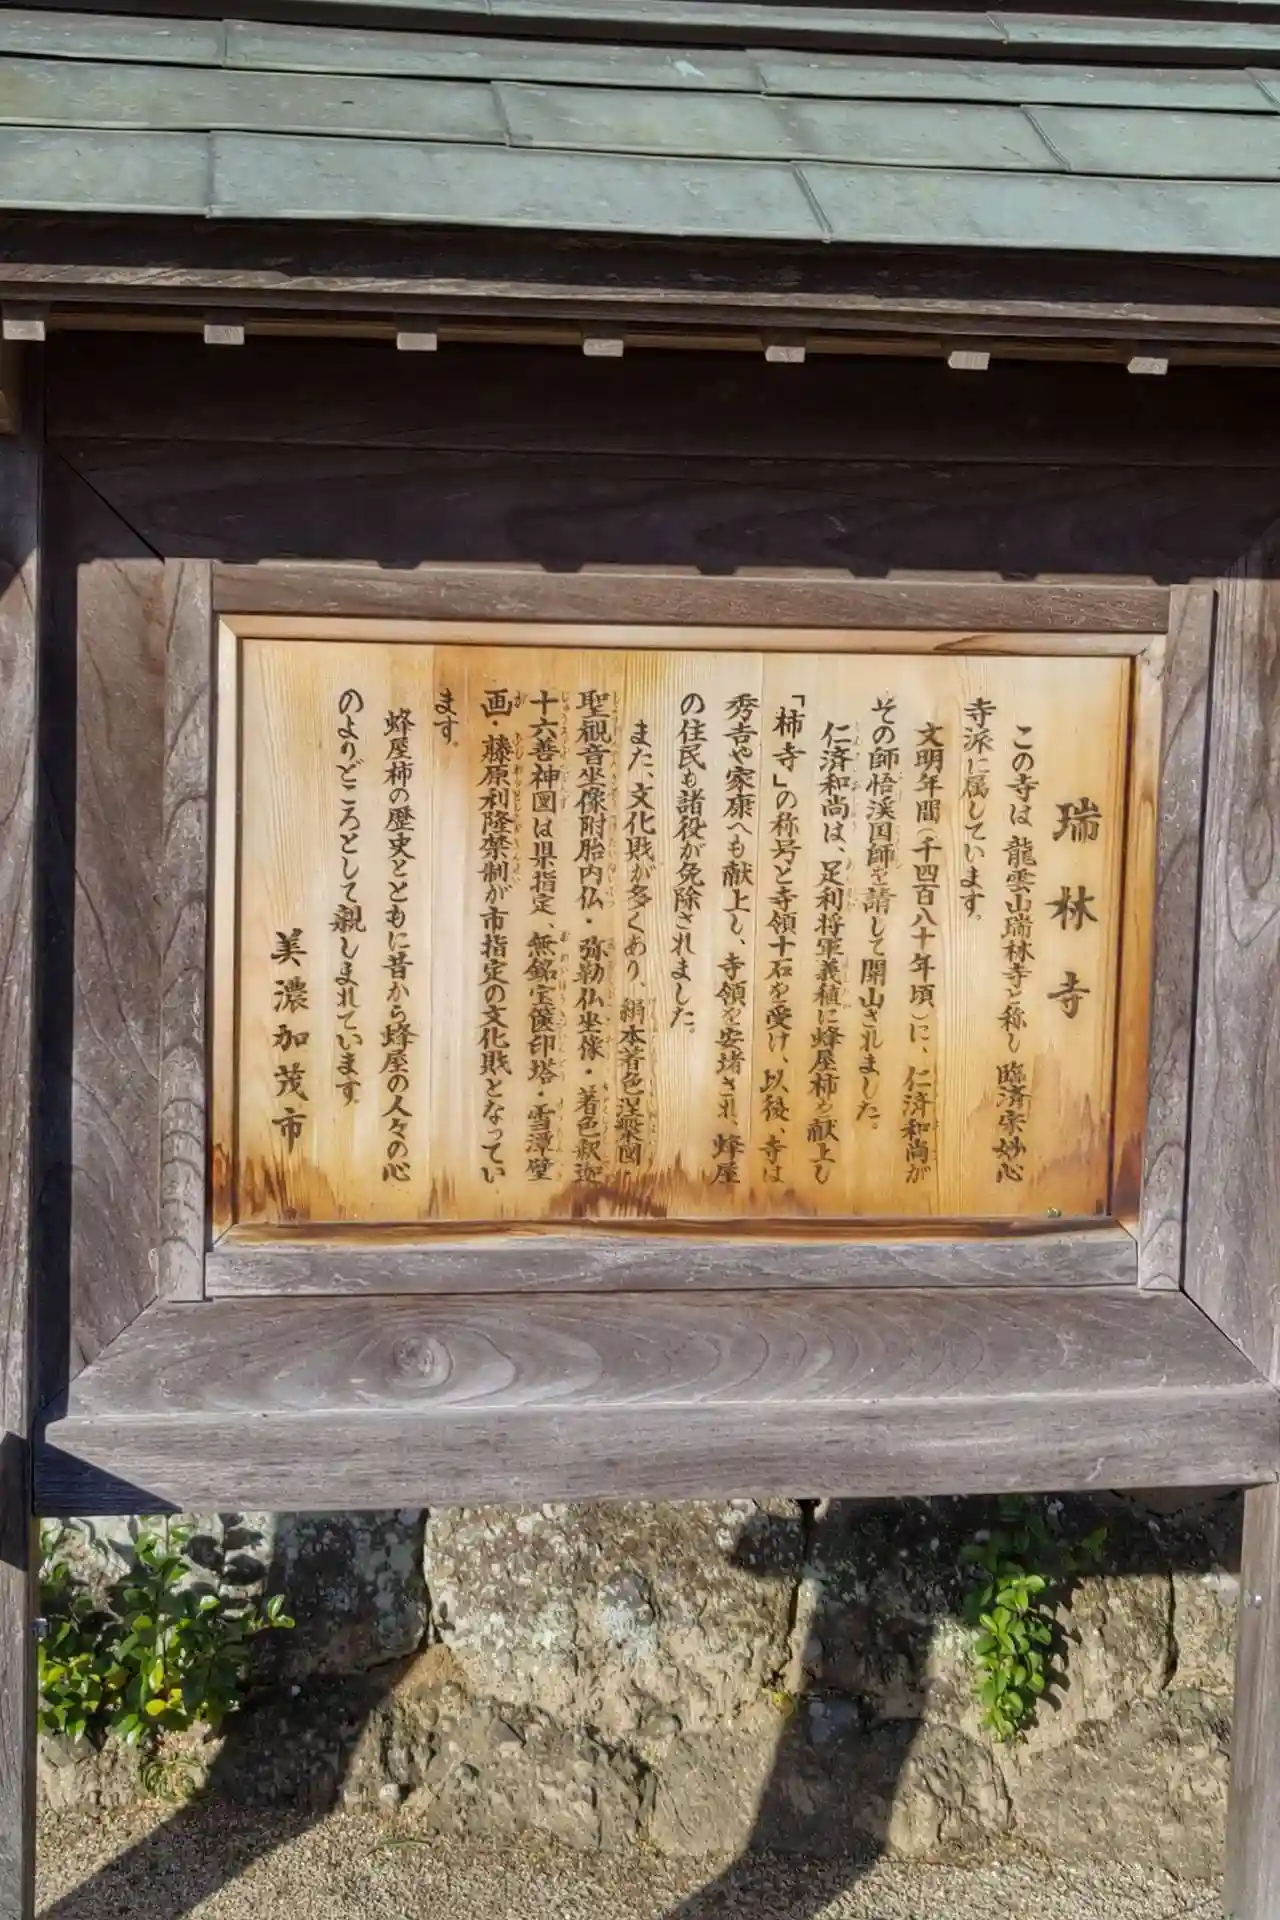 瑞林寺
この寺は龍雲山瑞林寺と称し臨済宗妙心
寺派に属しています。
文明年間(千四百八十年頃)に、仁済和尚が
その師悟渓国師を請して開山されました。
仁済和尚は、足利将軍義稙に蜂屋柿を献上し
「柿寺」の称号と寺領十石を受け、以後、寺は
秀吉や家康へも献上し、寺領を安堵され、蜂屋
の住民も諸役が免除されました。
また、文化財が多くあり、絹本着色涅槃図・
聖観音坐像附胎内仏・弥勒仏坐像・着色釈迦
十六善神図は県指定、無銘宝篋印塔・雪潭壁
画・藤原利隆禁制が市指定の文化財となってい
ます。
蜂屋柿の歴史とともに昔から蜂屋の人々の心
のよりどころとして親しまれています。
美濃加茂市